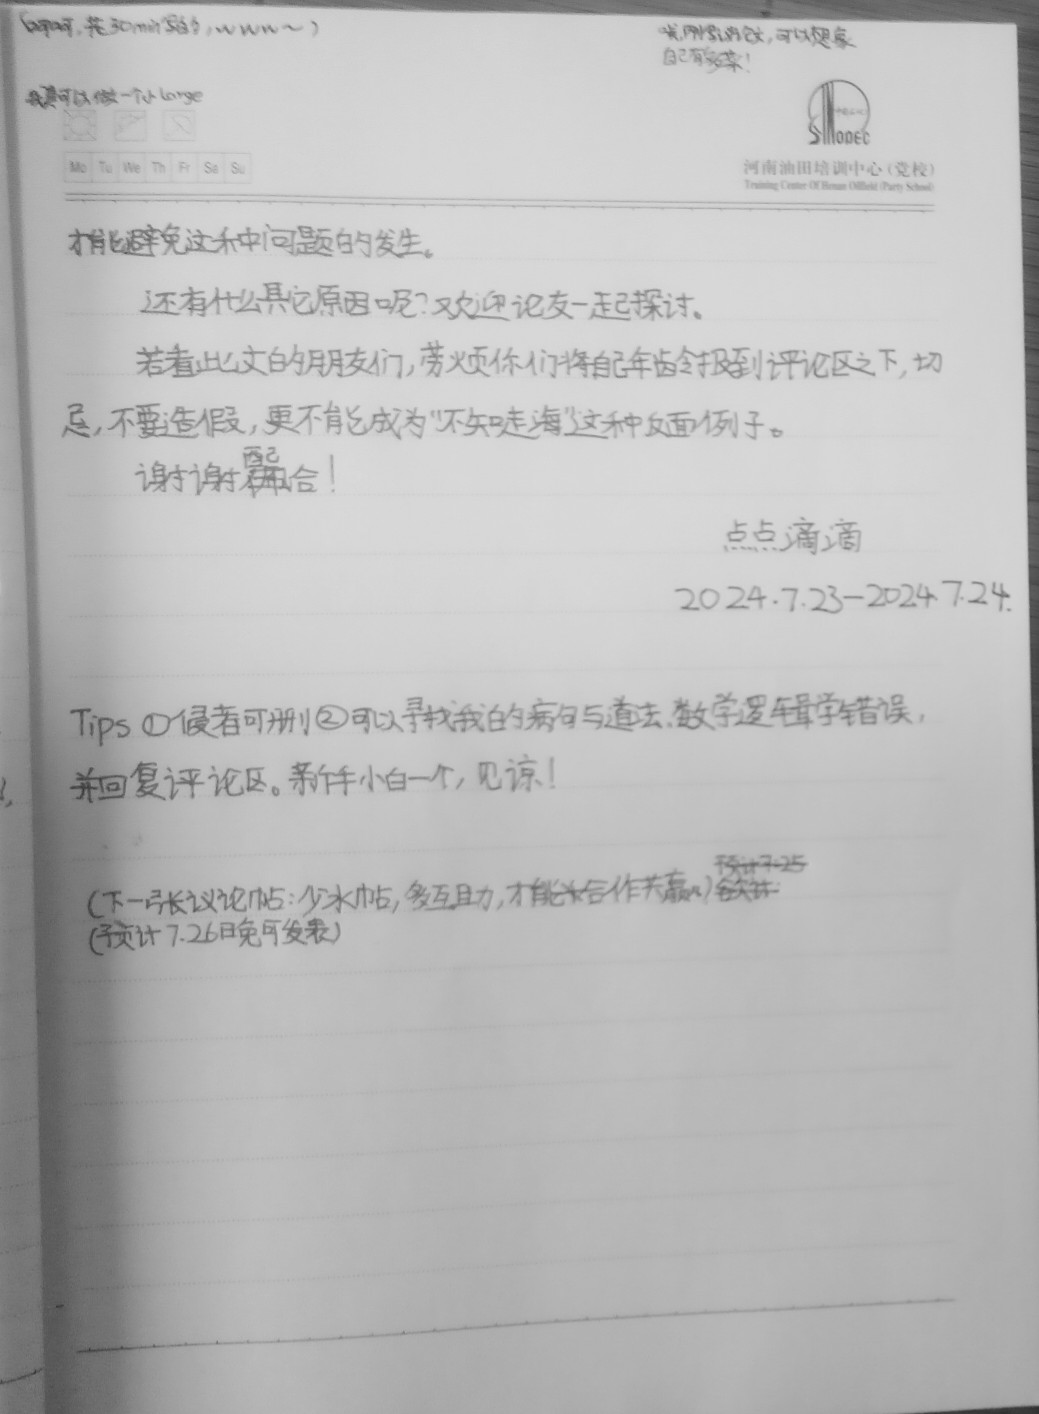 花30min写的,wwww~)
可以想象
自己有多菜!
我真可以做一个小Large
Mo Tu We Th Fr Sa Su
SINOPEC
河南油田培训中心(党校)
Training Center Of Henan Oilfield (Party School)
才能避免这种问题的发生。
还有什么其它原因呢?欢迎论友一起探讨。
若看此文的朋友们,劳烦你们将自己年龄报到评论区之下,切
忌,不要造假,更不能成为“不知走海”这种反面例子。
谢谢配合!
点点滴滴
2024.7.23—2024.7.24.
Tips ①侵者可删②可以寻找我的病句与道法、数学逻辑学错误,
并回复评论区。新手小白一个,见谅!
(下一张议论帖:少水帖,多互助,才能合作共赢)
(预计7.26日兔可发表)